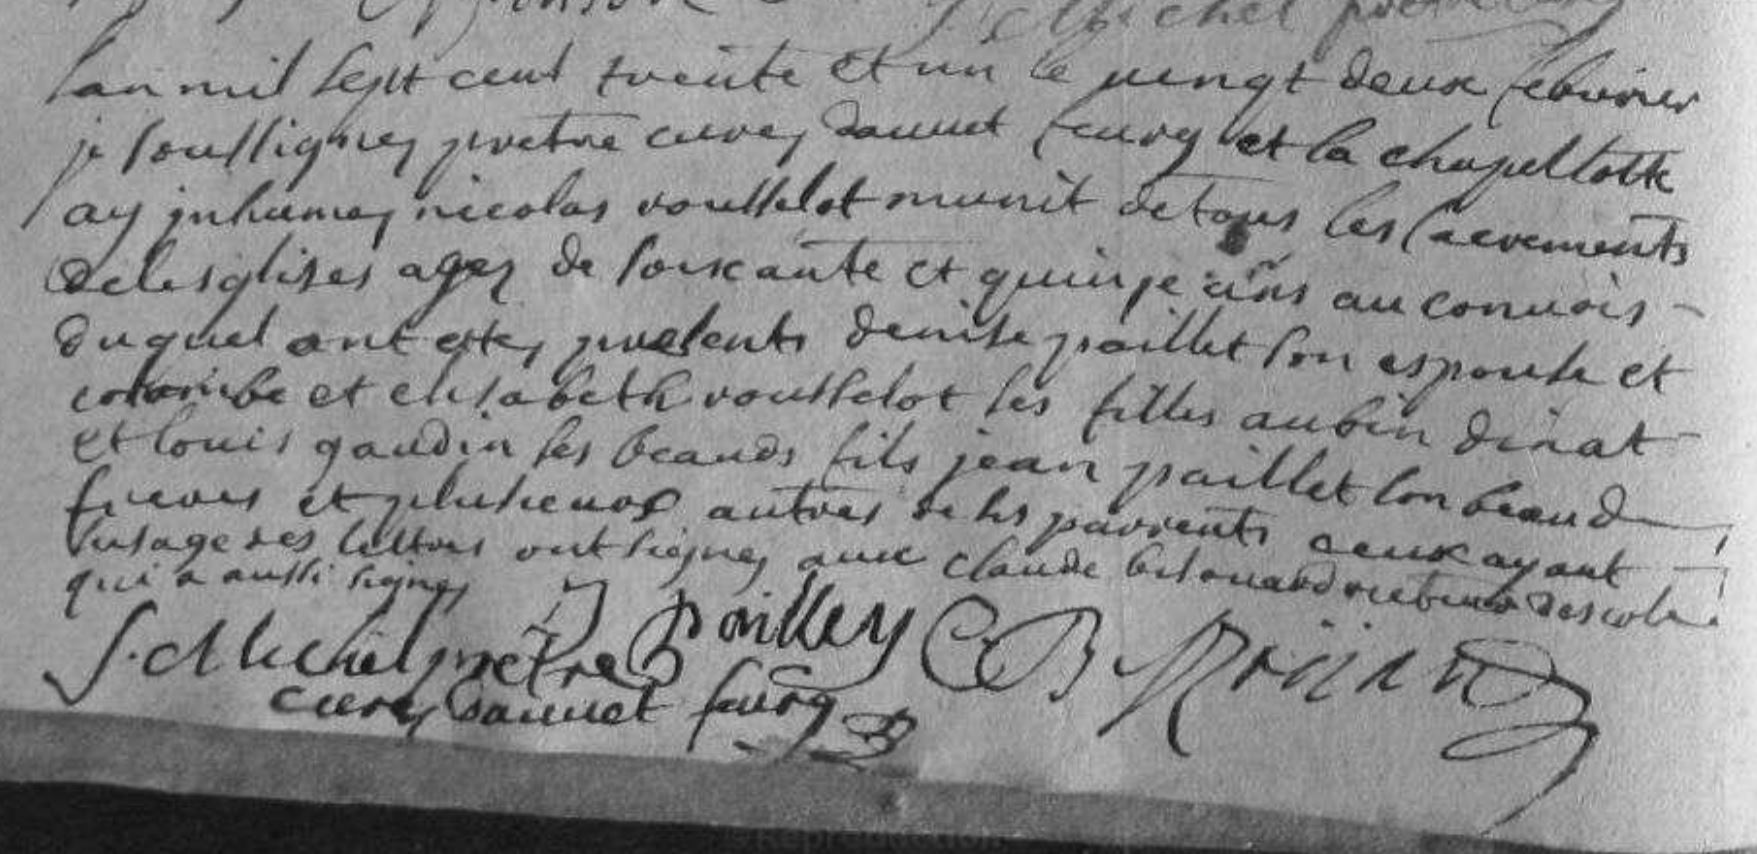 St Michel pretre
lan mil sept cent trente et un le vingt deux febvrier
je soussigney pretre curey dannet sury et la chapellotte
ay inhumey nicolas rousselot munit de tous les sacrements
de lesglises agez de soixante et quinze ans au convois
duquel ont estey presents denise paillet son espouse et
colombe et elisabeth rousselot ses filles aubin
et louis gaudin ses beauds fils jean paillet son beaud
freres et plusieurs autres de ses parrents ceux ayant
lusage des lettres ont signey avec claude recteur descole
qui a aussi signey
J pailley C B
St Michel pretre
curey dannet sury